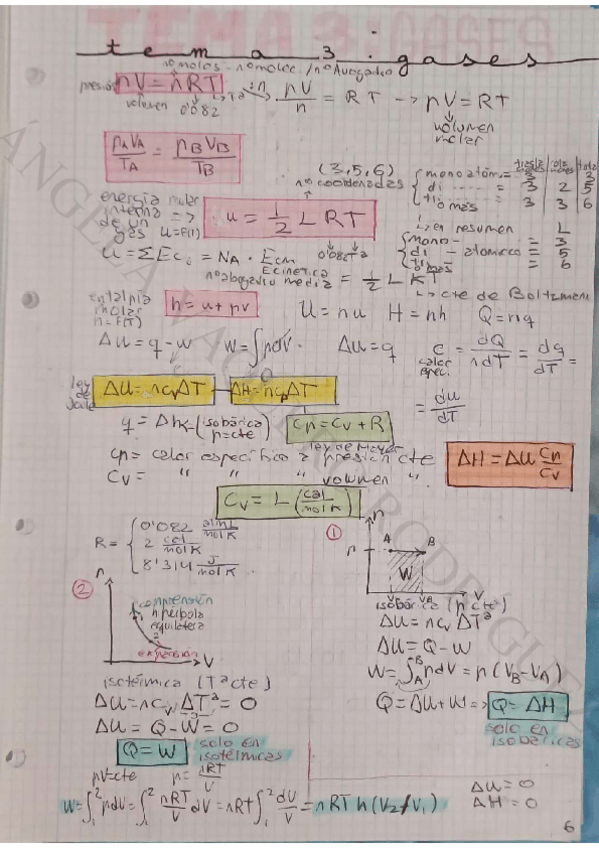 TEMA 3: GASES
tema 3: gases
nº moles = nº molec. / nº Avogadro
presión pV = nRT → pV/n = RT → pV = RT
volumen 0'082 Tª volumen molar
pAVA/TA = pBVB/TB
(3,5,6)
nº coordenadas
monoatóm. = 3 3
di ..... = 3 2 5
tri ..... o más = 3 3 6
energía molar interna de un gas u=f(T) => u = 1/2 L RT
↳ en resumen L
mono- = 3
di - atómico = 5
tri o más = 6
u = ΣEci = NA · Ecm 0'082 Tª
nº abogadro Ecinética media = 1/2 L KT
↳ cte de Boltzman
entalpía molar h=f(T) h = u + pv U = nu H = nh Q = nq
Δu = q - w w = ∫pdv Δu = q
c calor espec. = dQ/ndT = dq/dT =
= du/dT
ley de Joule ΔU = ncvΔT ΔH = ncpΔT
q = Δh ← (isobárica p=cte) cp = cv + R
ley de Mayer
cp = calor específico a presión cte
cv = " " " volumen "
ΔH = ΔU cp/cv
cv = L (cal/molK)
R = { 0'082 atmL/molK
2 cal/molK
8'314 J/molK
① p
p A B
W
VA VB V
isobárica (p cte)
ΔU = ncv ΔTª
ΔU = Q - W
W = ∫AB pdV = p(VB - VA)
Q = ΔU + W => Q = ΔH
solo en isobáricas
② p
compresión
hipérbola equilátera
expansión
V
isotérmica (Tª cte)
ΔU = ncv ΔTª = 0
ΔU = Q - W = 0
Q = W solo en isotérmicas
pV = cte p = nRT/V
W = ∫12 pdV = ∫12 nRT/V dV = nRT ∫12 dV/V = nRT ln(V2/V1)
ΔU = 0
ΔH = 0
6